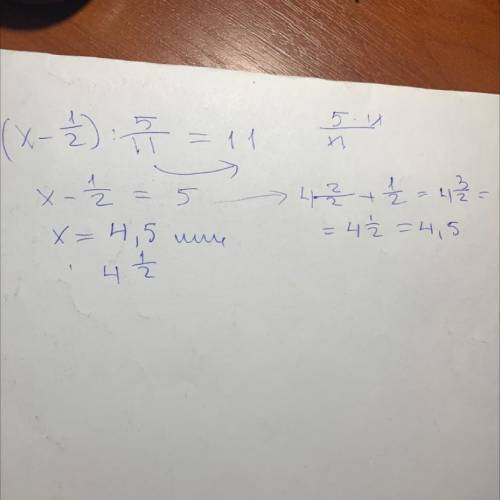 (x - 1/2) : 5/11 = 11
5 · 11 / 11
x - 1/2 = 5 → 4 2/2 + 1/2 = 4 3/2 =
x = 4,5 или
= 4 1/2 = 4,5
4 1/2